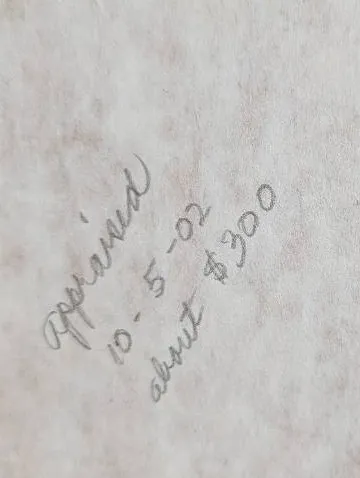 appraised
10-5-02
about $300